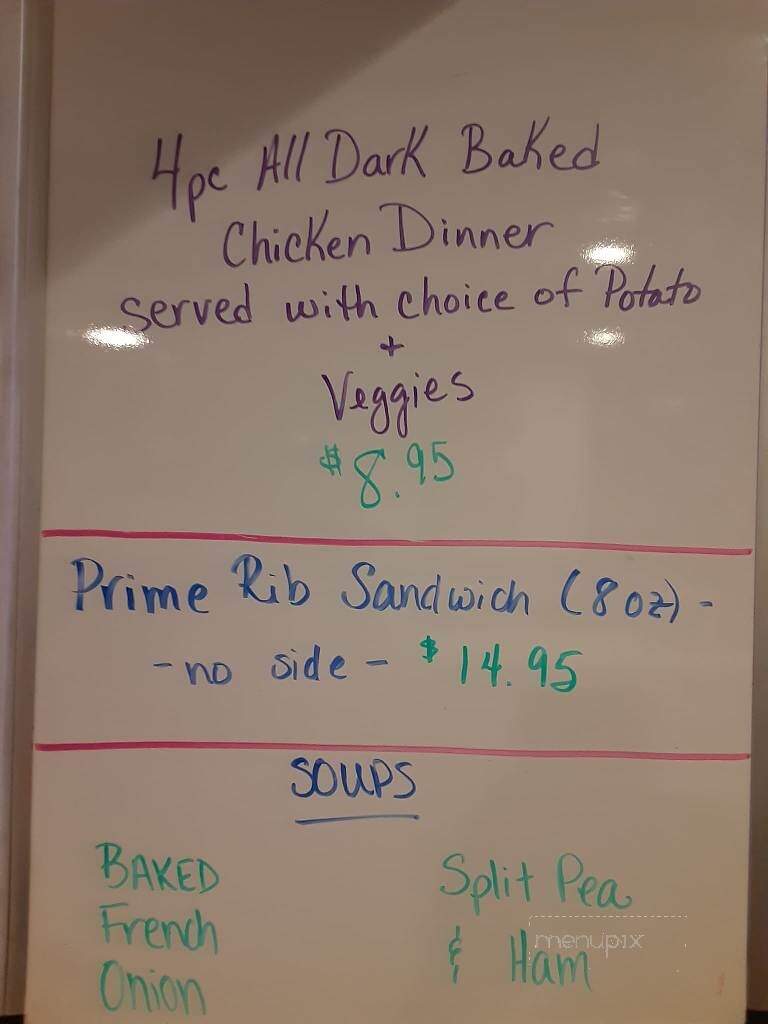 4pc All Dark Baked
Chicken Dinner
served with choice of Potato
+
Veggies
$8.95
Prime Rib Sandwich (8 oz) -
- no side - $14.95
SOUPS
BAKED
French
Onion
Split Pea
& Ham
menupix